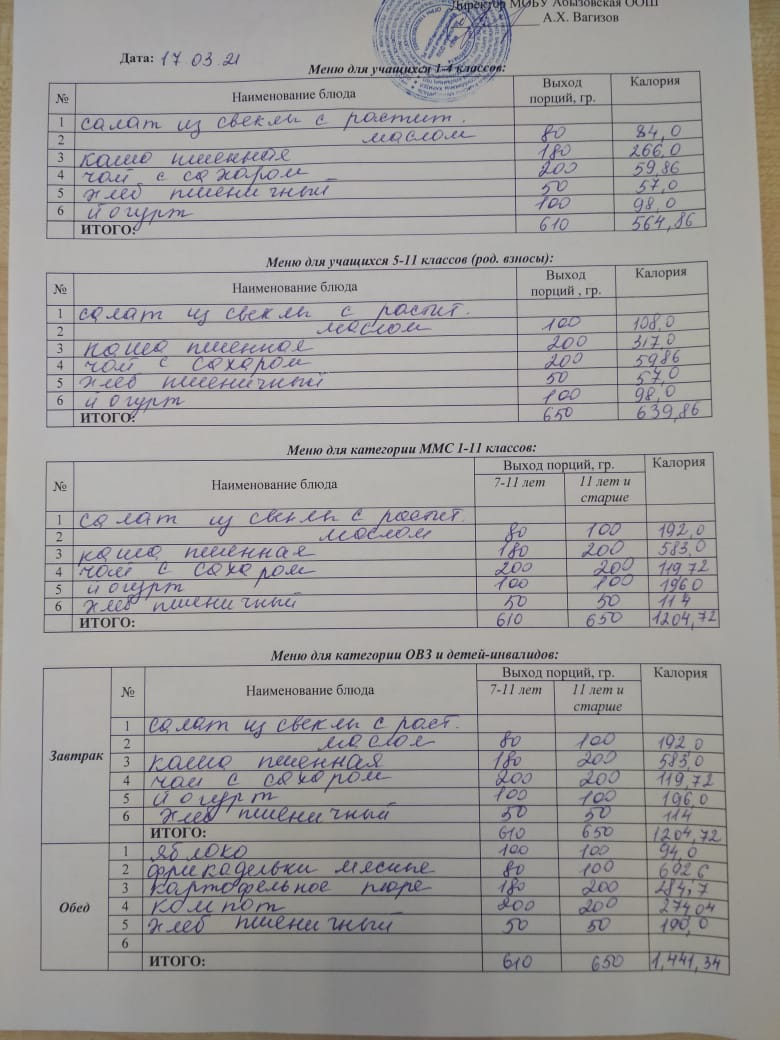 Директор МОБУ Абызовская ООШ
А.Х. Вагизов
Дата: 17.03.21
Меню для учащихся 1-4 классов:
№ Наименование блюда Выход порций, гр. Калория
1 салат из свеклы с растит.
2 маслом 80 84,0
3 каша пшенная 180 266,0
4 чай с сахаром 200 59,86
5 хлеб пшеничный 50 57,0
6 йогурт 100 98,0
ИТОГО: 610 564,86
Меню для учащихся 5-11 классов (род. взносы):
№ Наименование блюда Выход порций , гр. Калория
1 салат из свеклы с растит.
2 маслом 100 108,0
3 каша пшенная 200 317,0
4 чай с сахаром 200 59,86
5 хлеб пшеничный 50 57,0
6 йогурт 100 98,0
ИТОГО: 650 639,86
Меню для категории ММС 1-11 классов:
№ Наименование блюда Выход порций, гр. Калория
7-11 лет 11 лет и старше
1 салат из свеклы с растит.
2 маслом 80 100 192,0
3 каша пшенная 180 200 583,0
4 чай с сахаром 200 200 119,72
5 йогурт 100 100 196,0
6 хлеб пшеничный 50 50 114
ИТОГО: 610 650 1204,72
Меню для категории ОВЗ и детей-инвалидов:
№ Наименование блюда Выход порций, гр. Калория
7-11 лет 11 лет и старше
Завтрак
1 салат из свеклы с раст.
2 маслом 80 100 192,0
3 каша пшенная 180 200 583,0
4 чай с сахаром 200 200 119,72
5 йогурт 100 100 196,0
6 хлеб пшеничный 50 50 114
ИТОГО: 610 650 1204,72
Обед
1 яблоко 100 100 94,0
2 фрикадельки мясные 80 100 692,6
3 картофельное пюре 180 200 284,7
4 компот 200 200 274,04
5 хлеб пшеничный 50 50 100,0
6
ИТОГО: 610 650 1,441,34